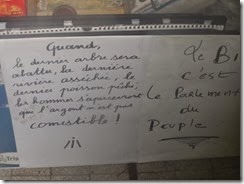 Quand,
le dernier arbre sera
abattu, la dernière
rivière asséchée, le
dernier poisson pêché,
les hommes s'apercevront
que l'argent n'est pas
comestible !
Le B1
c'est
Le Parlement
du
Peuple